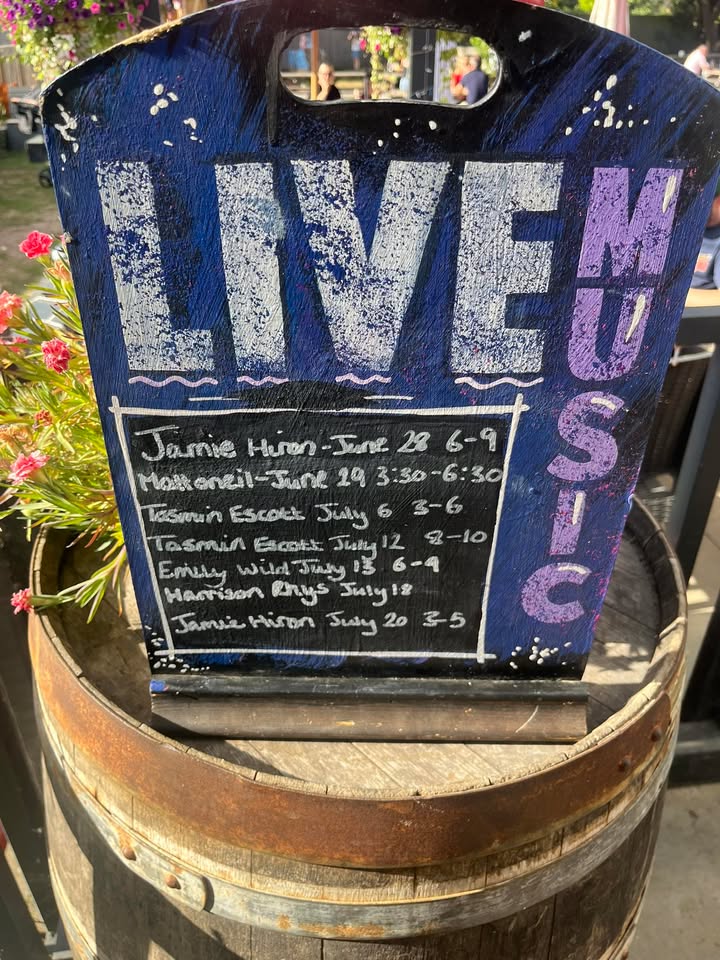 LIVE
MUSIC
Jamie Hiron - June 28 6-9
Mattoneil - June 29 3:30-6:30
Tasmin Escott July 6 3-6
Tasmin Escott July 12 8-10
Emily Wild July 13 6-9
Harrison Rhys July 18
Jamie Hiron July 20 3-5